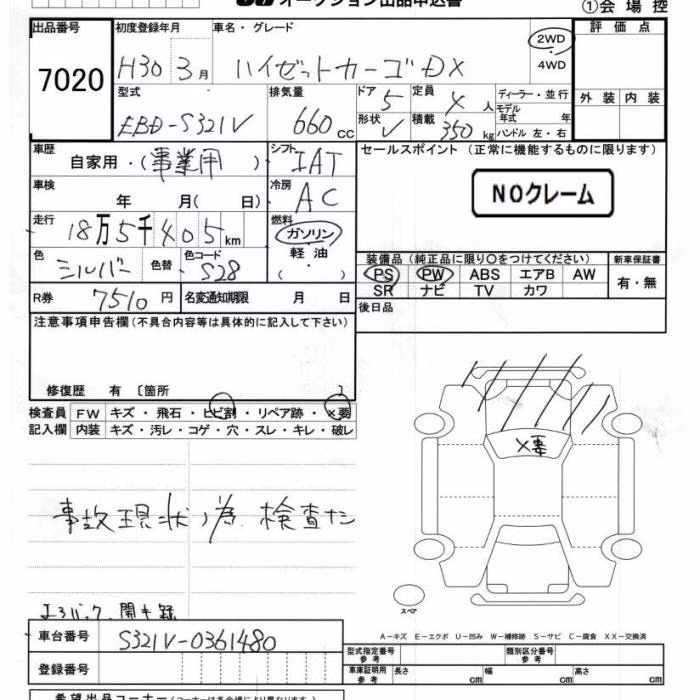 オークション出品申込書
①会場控
出品番号 初度登録年月 車名・グレード 評価点
7020 H30 3月 ハイゼットカーゴ DX 2WD
4WD
型式 排気量 ドア 定員 ディーラー・並行 外装 内装
EBD-S321V 660cc 5 4人 モデル年式 年
形状 V 積載 350kg ハンドル 左・右
車歴 シフト セールスポイント (正常に機能するものに限ります)
自家用・(事業用) IAT
車検 冷房 NOクレーム
年 月( 日) AC
走行 燃料
18万5千405km ガソリン
・
色 色替 色コード 軽油 装備品(純正品に限り○をつけてください) 新車保証書
シルバー S28 ( ) PS PW ABS エアB AW 有・無
SR ナビ TV カワ
R券 7510円 名変通知期限 月 日 後日品
注意事項申告欄(不具合内容等は具体的に記入して下さい)
修復歴 有 〔箇所 〕
検査員 FW キズ・飛石・ヒビ割・リペア跡・×要
記入欄 内装 キズ・汚レ・コゲ・穴・スレ・キレ・破レ
×要
事故現状ノ為 検査ナシ
スペア
A−キズ E−エクボ U−凹み W−補修跡 S−サビ C−腐食 XX−交換済
車台番号 S321V-0361480
型式指定番号 参考 類別区分番号 参考
登録番号 車庫証明用 参考 長さ cm 幅 cm 高さ cm
希望出品コーナー